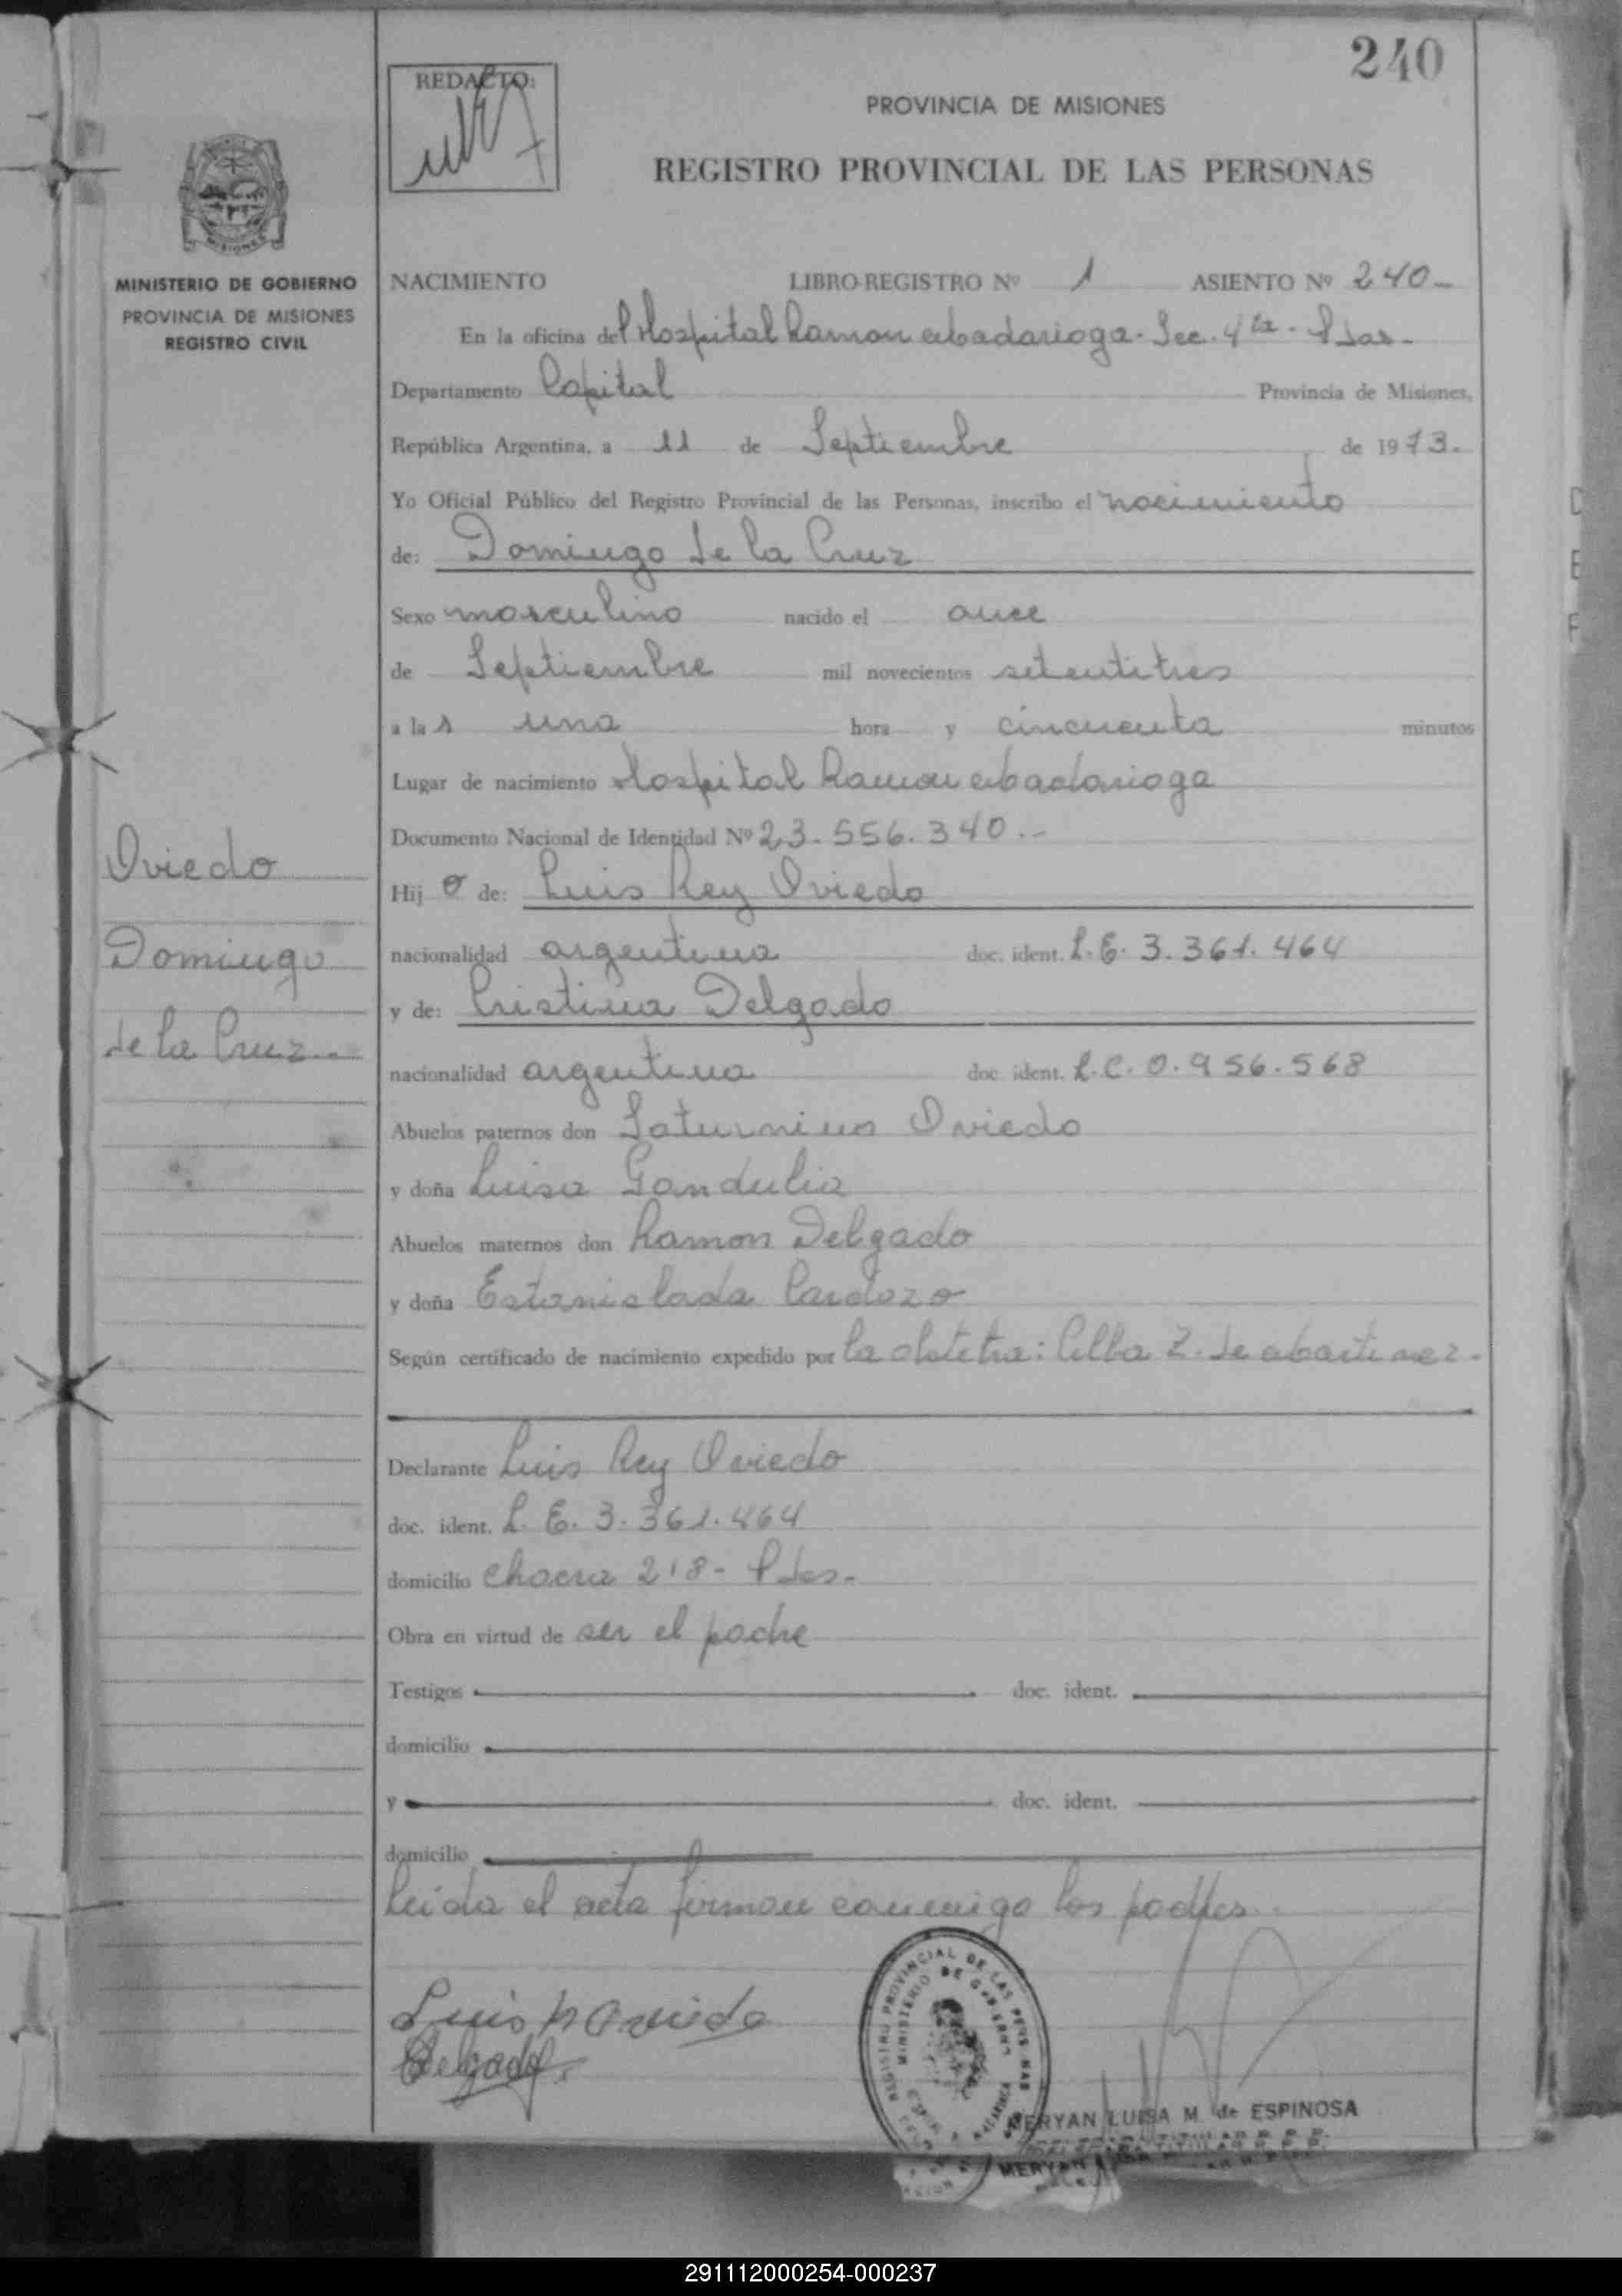 240
REDACTO:
PROVINCIA DE MISIONES
REGISTRO PROVINCIAL DE LAS PERSONAS
MISIONES
MINISTERIO DE GOBIERNO
PROVINCIA DE MISIONES
REGISTRO CIVIL
NACIMIENTO LIBRO-REGISTRO Nº 1 ASIENTO Nº 240-
En la oficina del Hospital Ramon Madariaga - Sec. 4ta - Pdas -
Departamento Capital Provincia de Misiones,
República Argentina, a 11 de Septiembre de 1973.
Yo Oficial Público del Registro Provincial de las Personas, inscribo el nacimiento
de: Domingo de la Cruz
Sexo masculino nacido el once
de Septiembre mil novecientos setentitres
a las una hora y cincuenta minutos
Lugar de nacimiento Hospital Ramon Madariaga
Documento Nacional de Identidad Nº 23.556.340.-
Oviedo
Domingo
de la Cruz..
Hijo de: Luis Rey Oviedo
nacionalidad argentina doc. ident. L.E. 3.361.464
y de: Cristina Delgado
nacionalidad argentina doc. ident. L.C. 0.956.568
Abuelos paternos don Saturnino Oviedo
y doña Luisa Gandulia
Abuelos maternos don Ramon Delgado
y doña Estanislada Cardozo
Según certificado de nacimiento expedido por la obstetra: Z. de Martinez-
Declarante Luis Rey Oviedo
doc. ident. L.E. 3.361.464
domicilio Chacra 218- Pdas-
Obra en virtud de ser el padre
Testigos doc. ident.
domicilio
y doc. ident.
domicilio
Leida el acta firman conmigo los padres..
Luis R Oviedo
Delgado
REGISTRO PROVINCIAL DE LAS PERSONAS
MINISTERIO DE GOBIERNO
MERYAN LUISA M. de ESPINOSA
291112000254-000237